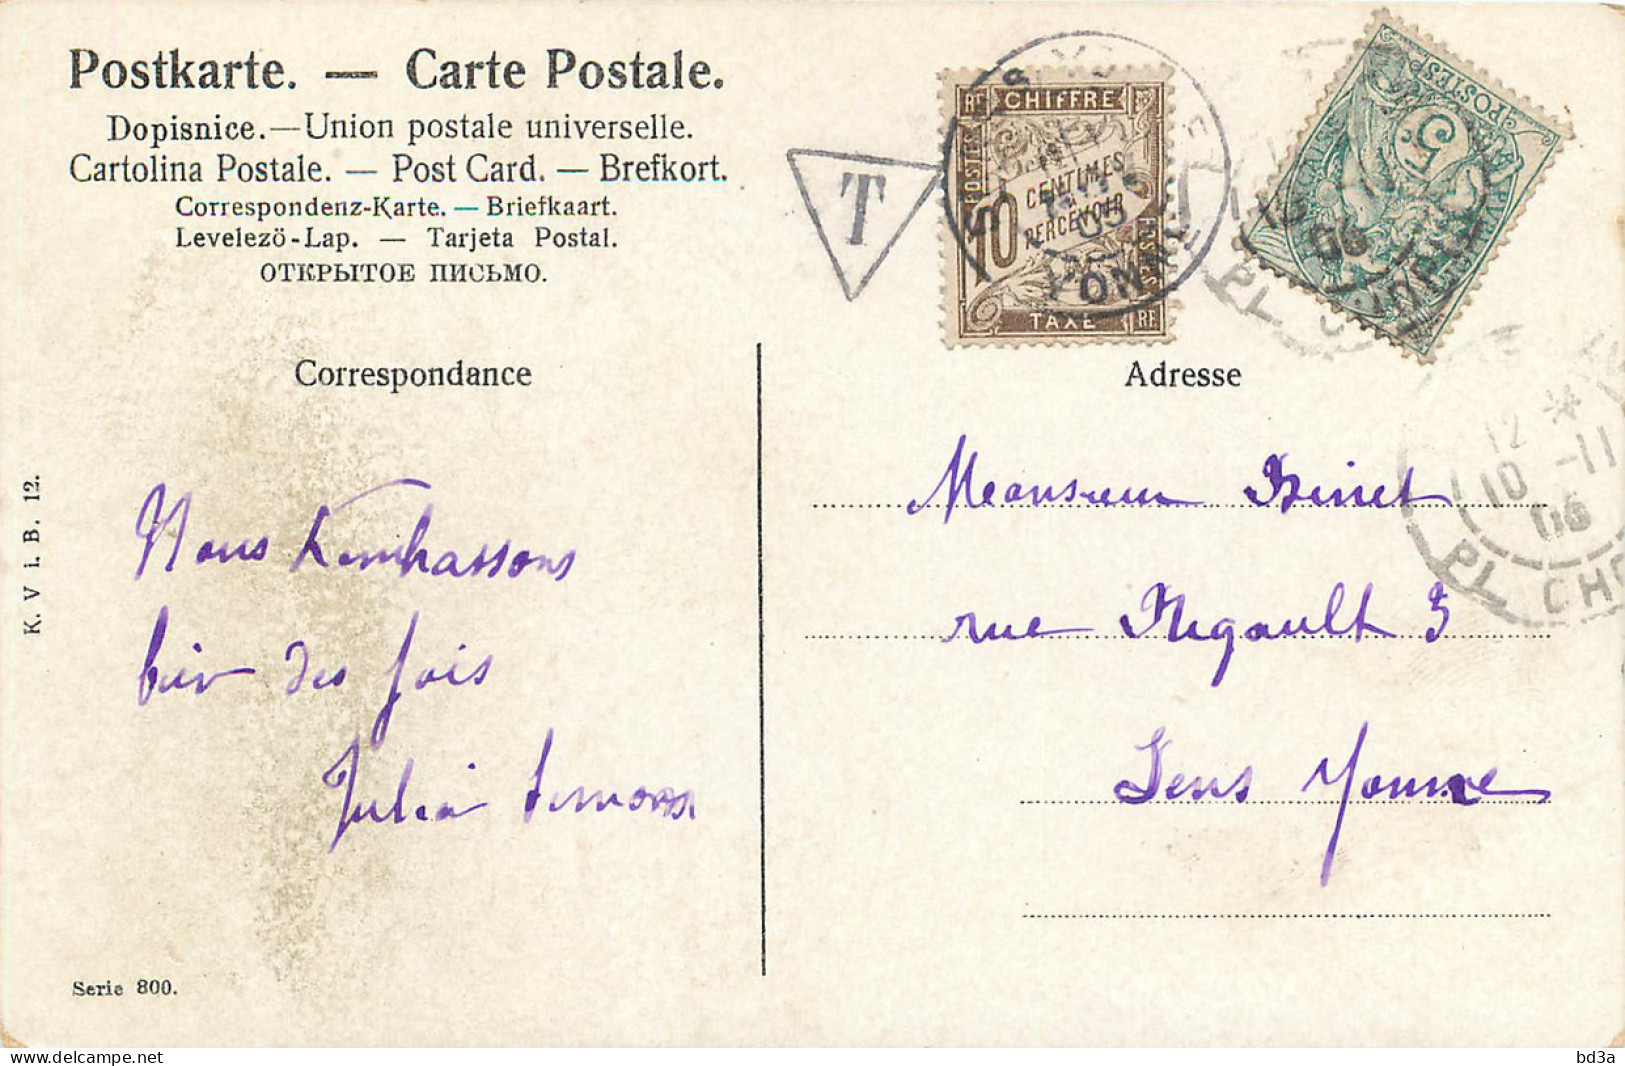 Postkarte. — Carte Postale.
Dopisnice. — Union postale universelle.
Cartolina Postale. — Post Card. — Brefkort.
Correspondenz-Karte. — Briefkaart.
Levelezö-Lap. — Tarjeta Postal.
ОТКРЫТОЕ ПИСЬМО.
T
RF CHIFFRE
POSTES
10 CENTIMES
PERCEVOIR
TAXE RF
YONNE
5
POSTES
06
PL. CHO
12 *
10 -11
06
PL. CHO
Correspondance
Adresse
Nous t'embrassons
bien des fois
Julia
Monsieur Binet
rue Rigault 3
Sens Yonne
K. V i. B. 12.
Serie 800.
Visit my auctions and store on www.delcampe.net
bd3a